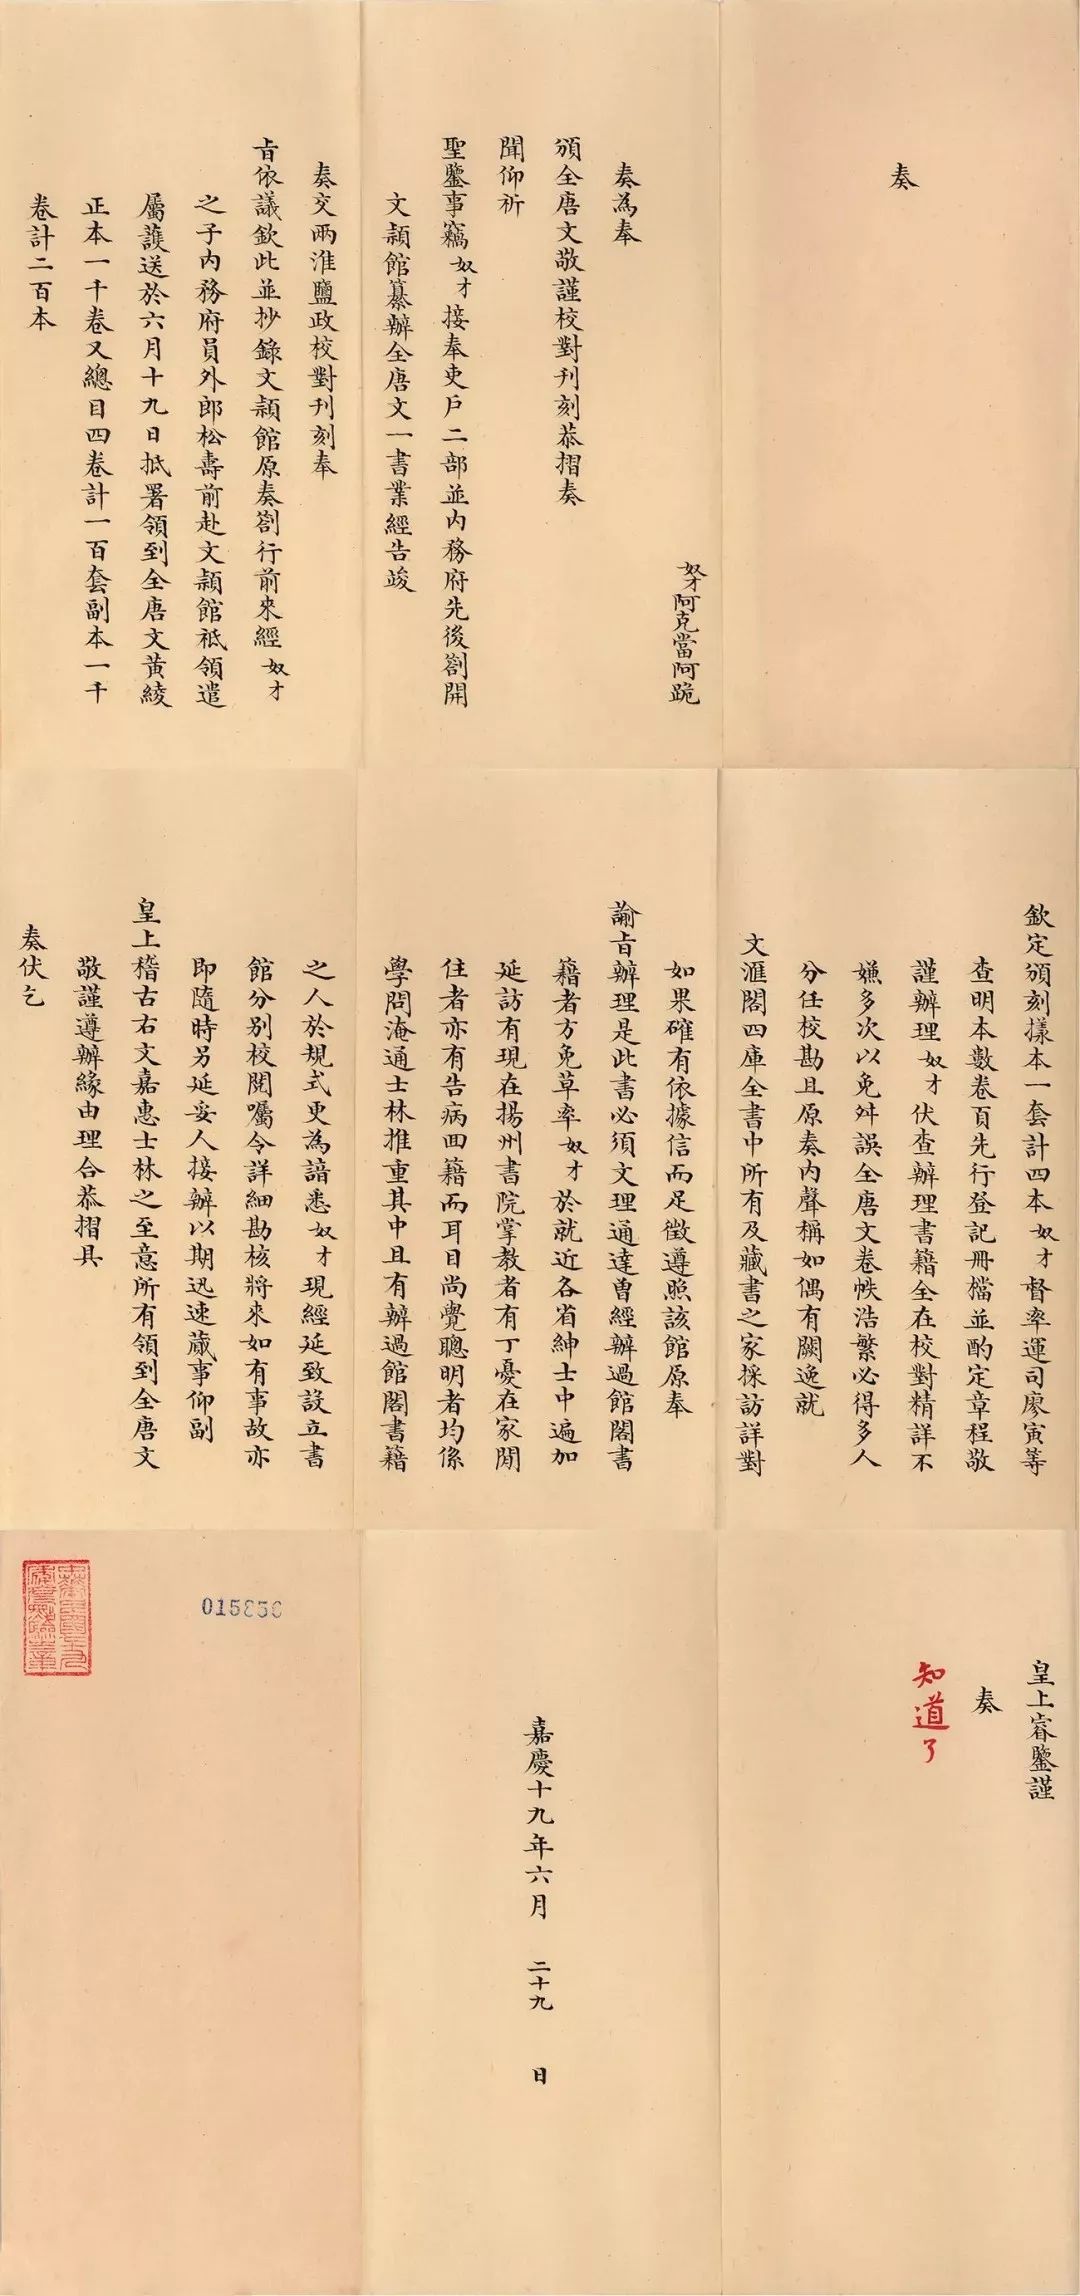 奏
奴才阿克當阿跪
奏為奉
頒全唐文敬謹校對刊刻恭摺奏
聞仰祈
聖鑒事竊奴才接奉吏戶二部並內務府先後劄開
文穎館纂辦全唐文一書業經告竣
奏交兩淮鹽政校對刊刻奉
旨依議欽此並抄錄文穎館原奏劄行前來經奴才
之子內務府員外郎松壽前赴文穎館祗領遣
屬護送於六月十九日抵署領到全唐文黃綾
正本一千卷又總目四卷計一百套副本一千
卷計二百本
欽定頒刻樣本一套計四本奴才督率運司廖寅等
查明本數卷頁先行登記冊檔並酌定章程敬
謹辦理奴才伏查辦理書籍全在校對精詳不
嫌多次以免舛誤全唐文卷帙浩繁必得多人
分任校勘且原奏內聲稱如偶有闕逸就
文滙閣四庫全書中所有及藏書之家採訪詳對
如果確有依據信而足徵遵照該館原奉
諭旨辦理是此書必須文理通達曾經辦過館閣書
籍者方免草率奴才於就近各省紳士中遍加
延訪有現在揚州書院掌教者有丁憂在家閒
住者亦有告病回籍而耳目尚覺聰明者均係
學問淹通士林推重其中且有辦過館閣書籍
之人於規式更為諳悉奴才現經延致設立書
館分別校閱囑令詳細勘核將來如有事故亦
即隨時另延妥人接辦以期迅速蕆事仰副
皇上稽古右文嘉惠士林之至意所有領到全唐文
敬謹遵辦緣由理合恭摺具
奏伏乞
皇上睿鑒謹
奏
知道了
嘉慶十九年六月 二十九 日